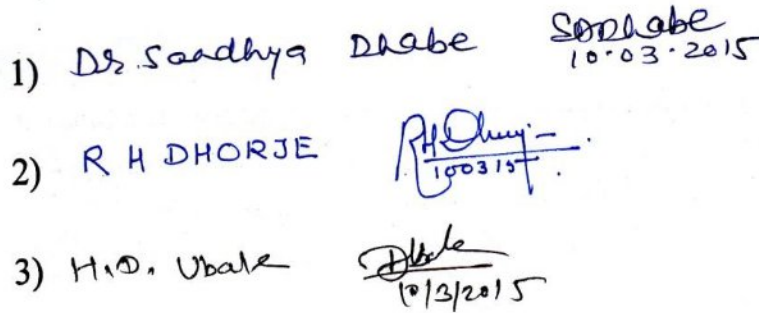 1) Dr. Sandhya Dhabe SDDhabe
10.03.2015
2) R H DHORJE
100315
3) H.D. Ubale
10/3/2015